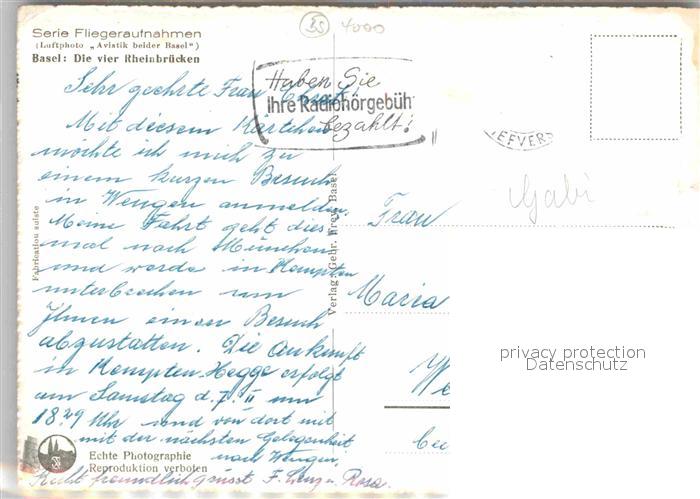 Serie Fliegeraufnahmen
(Luftphoto „Aviatik beider Basel")
Basel: Die vier Rheinbrücken
BS
4000
Haben Sie
Ihre Radiohörgebüh
bezahlt!
EFVER
Gabi
Sehr geehrte Frau
Mit diesem Kärtchen
möchte ich mich zu
einem kurzen Besuch
in Wengen anmelden.
Meine Fahrt geht dies
mal nach München
und werde in Kempten
unterbrechen um
Ihnen einen Besuch
abzustatten. Die Ankunft
in Kempten-Hegge erfolgt
am Samstag d. 7. II um
18.29 Uhr und von dort mit
mit der nächsten Gelegenheit
nach Wengen.
Recht freundlich grüsst F. Lenz u. Rosa.
Fabrication suisse
Verlag Gebr. Wrey, Basel
Echte Photographie
Reproduktion verboten
Frau
Maria
We
privacy protection
Datenschutz